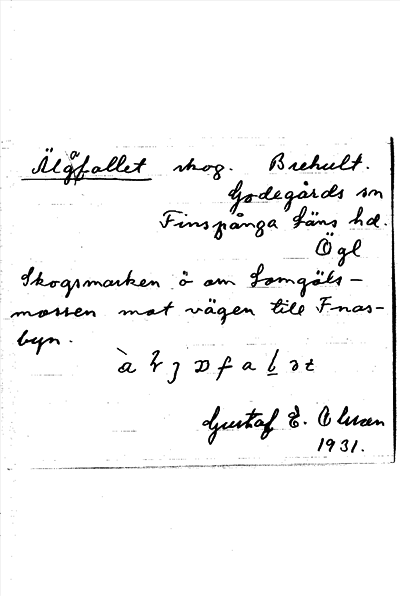 Älgafallet skog. Brehult.
Godegårds sn
Finspånga Läns hd.
Ögl
Skogsmarken ö om Somgöls-
mossen mot vägen till Fnas-
byn.
Gustaf E. Olsson
1931.